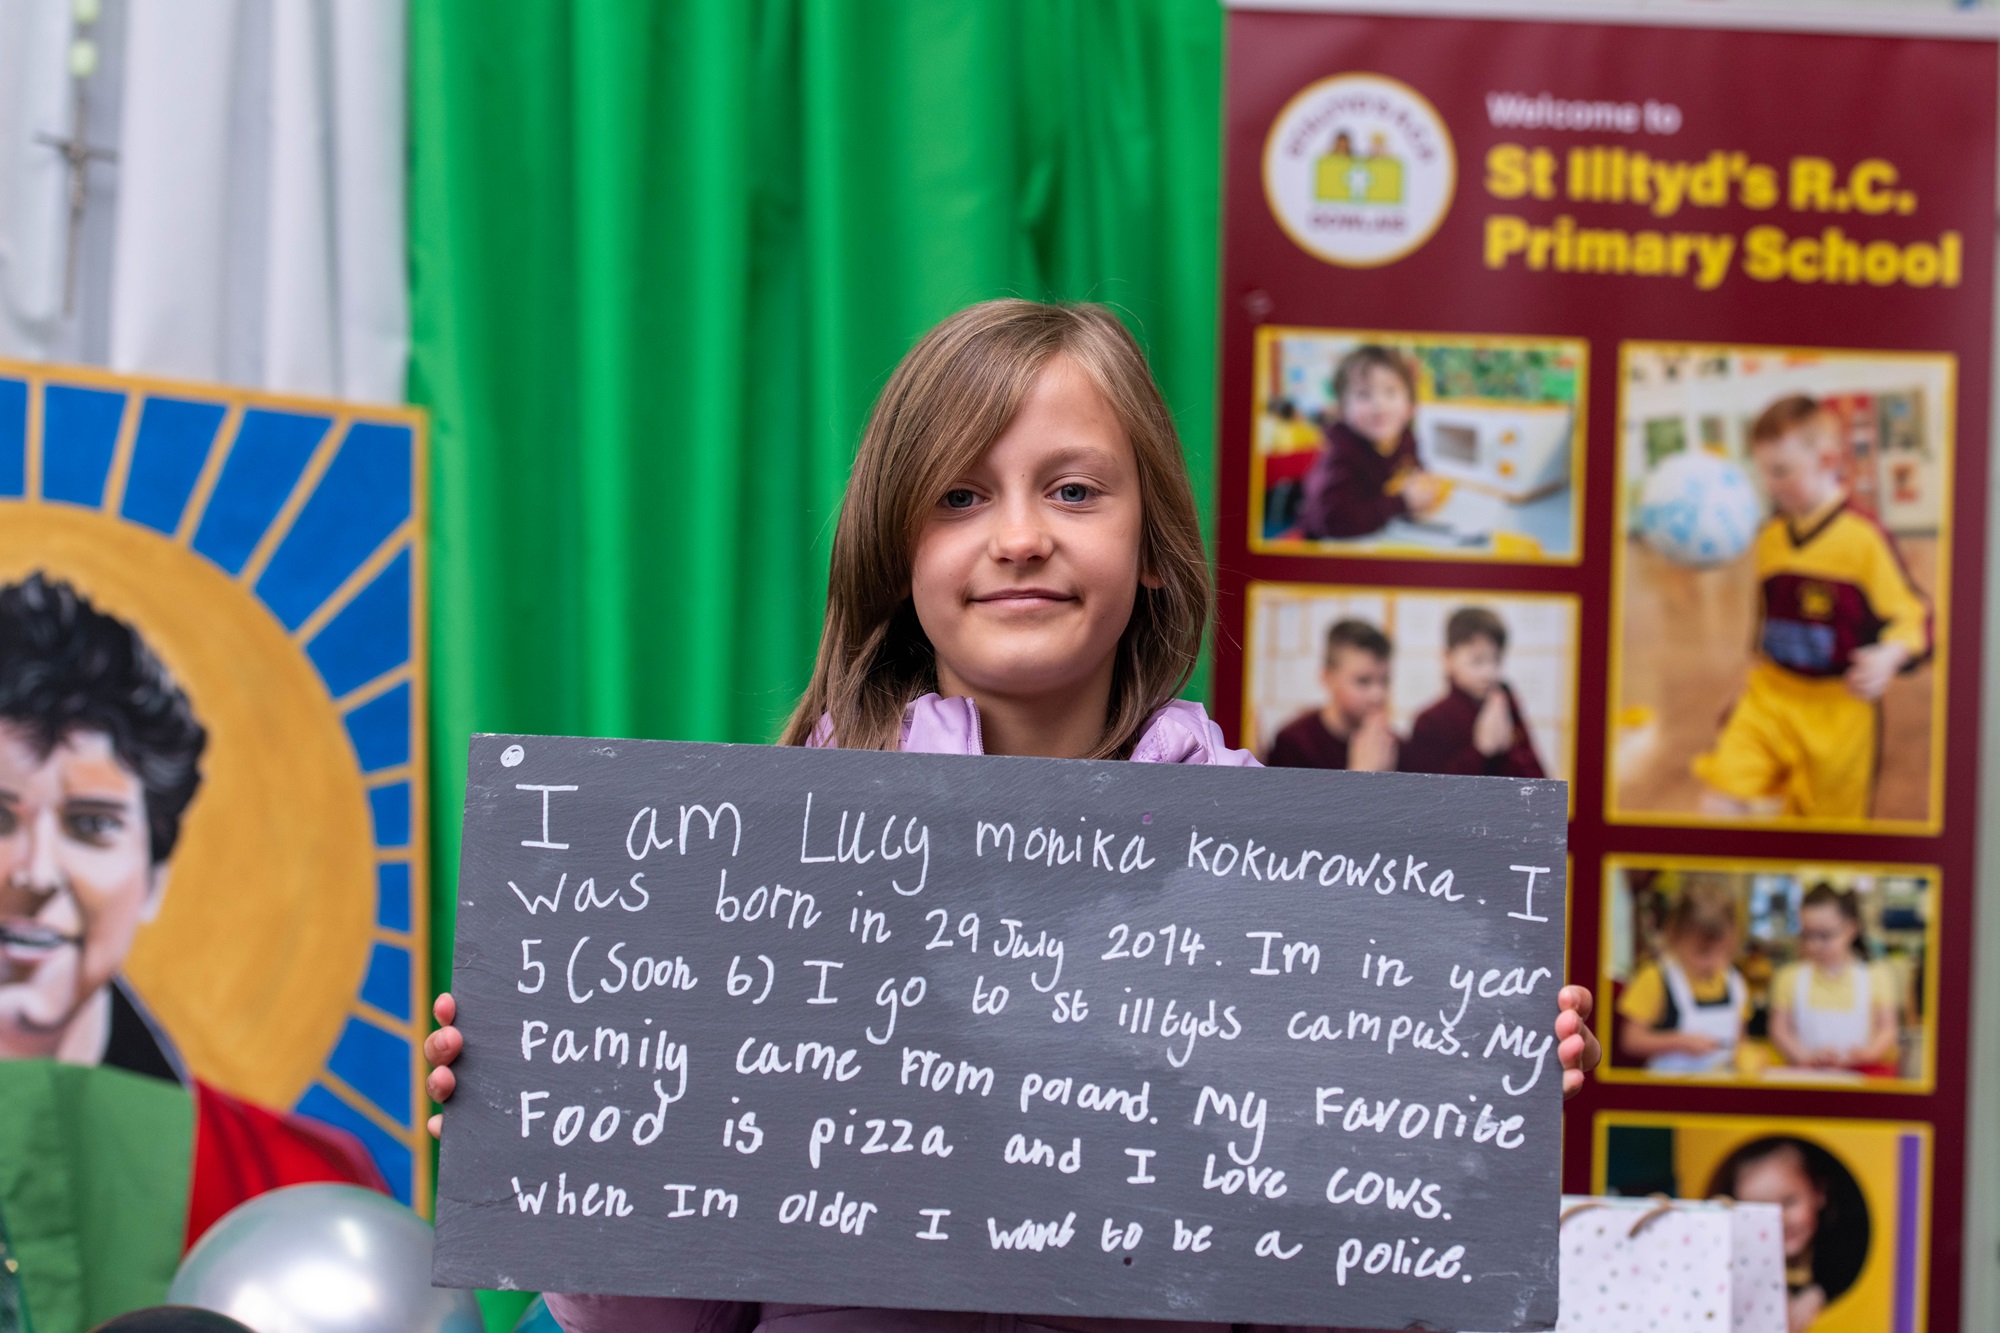 Welcome to
St Illtyd's R.C.
Primary School
DOWLAIS
I am Lucy monika kokurowska. I
was born in 29 July 2014. Im in year
5 (Soon 6) I go to st illtyds campus. My
Family came From poland. My Favorite
Food is pizza and I Love cows.
when Im older I want to be a police.